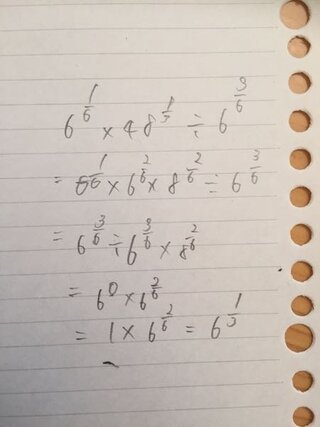 6^{1/6} × 48^{1/3} ÷ 6^{3/6}
= 6^{1/6} × 6^{2/6} × 8^{2/6} ÷ 6^{3/6}
= 6^{3/6} ÷ 6^{3/6} × 8^{2/6}
= 6^0 × 6^{2/6}
= 1 × 6^{2/6} = 6^{1/3}